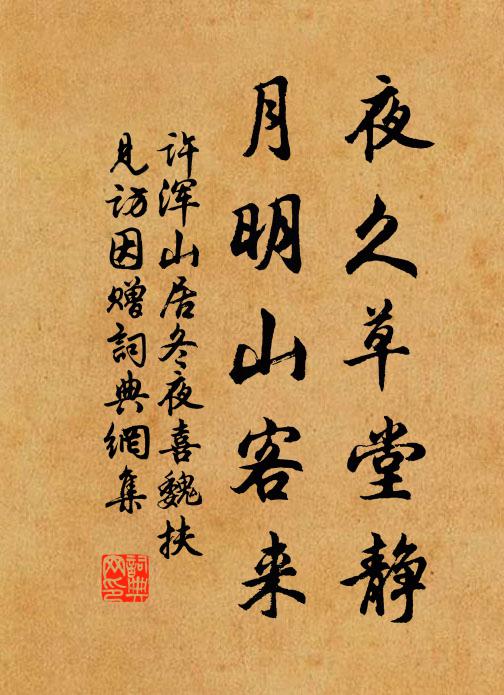 夜久草堂静
月明山客来
许浑山居冬夜喜魏扶
见访因赠词典網集
詞典网印